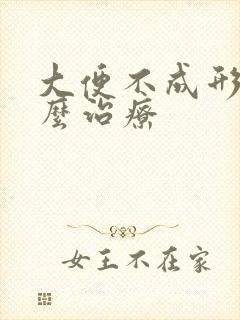 大便不成形
麼治療
女王不在家